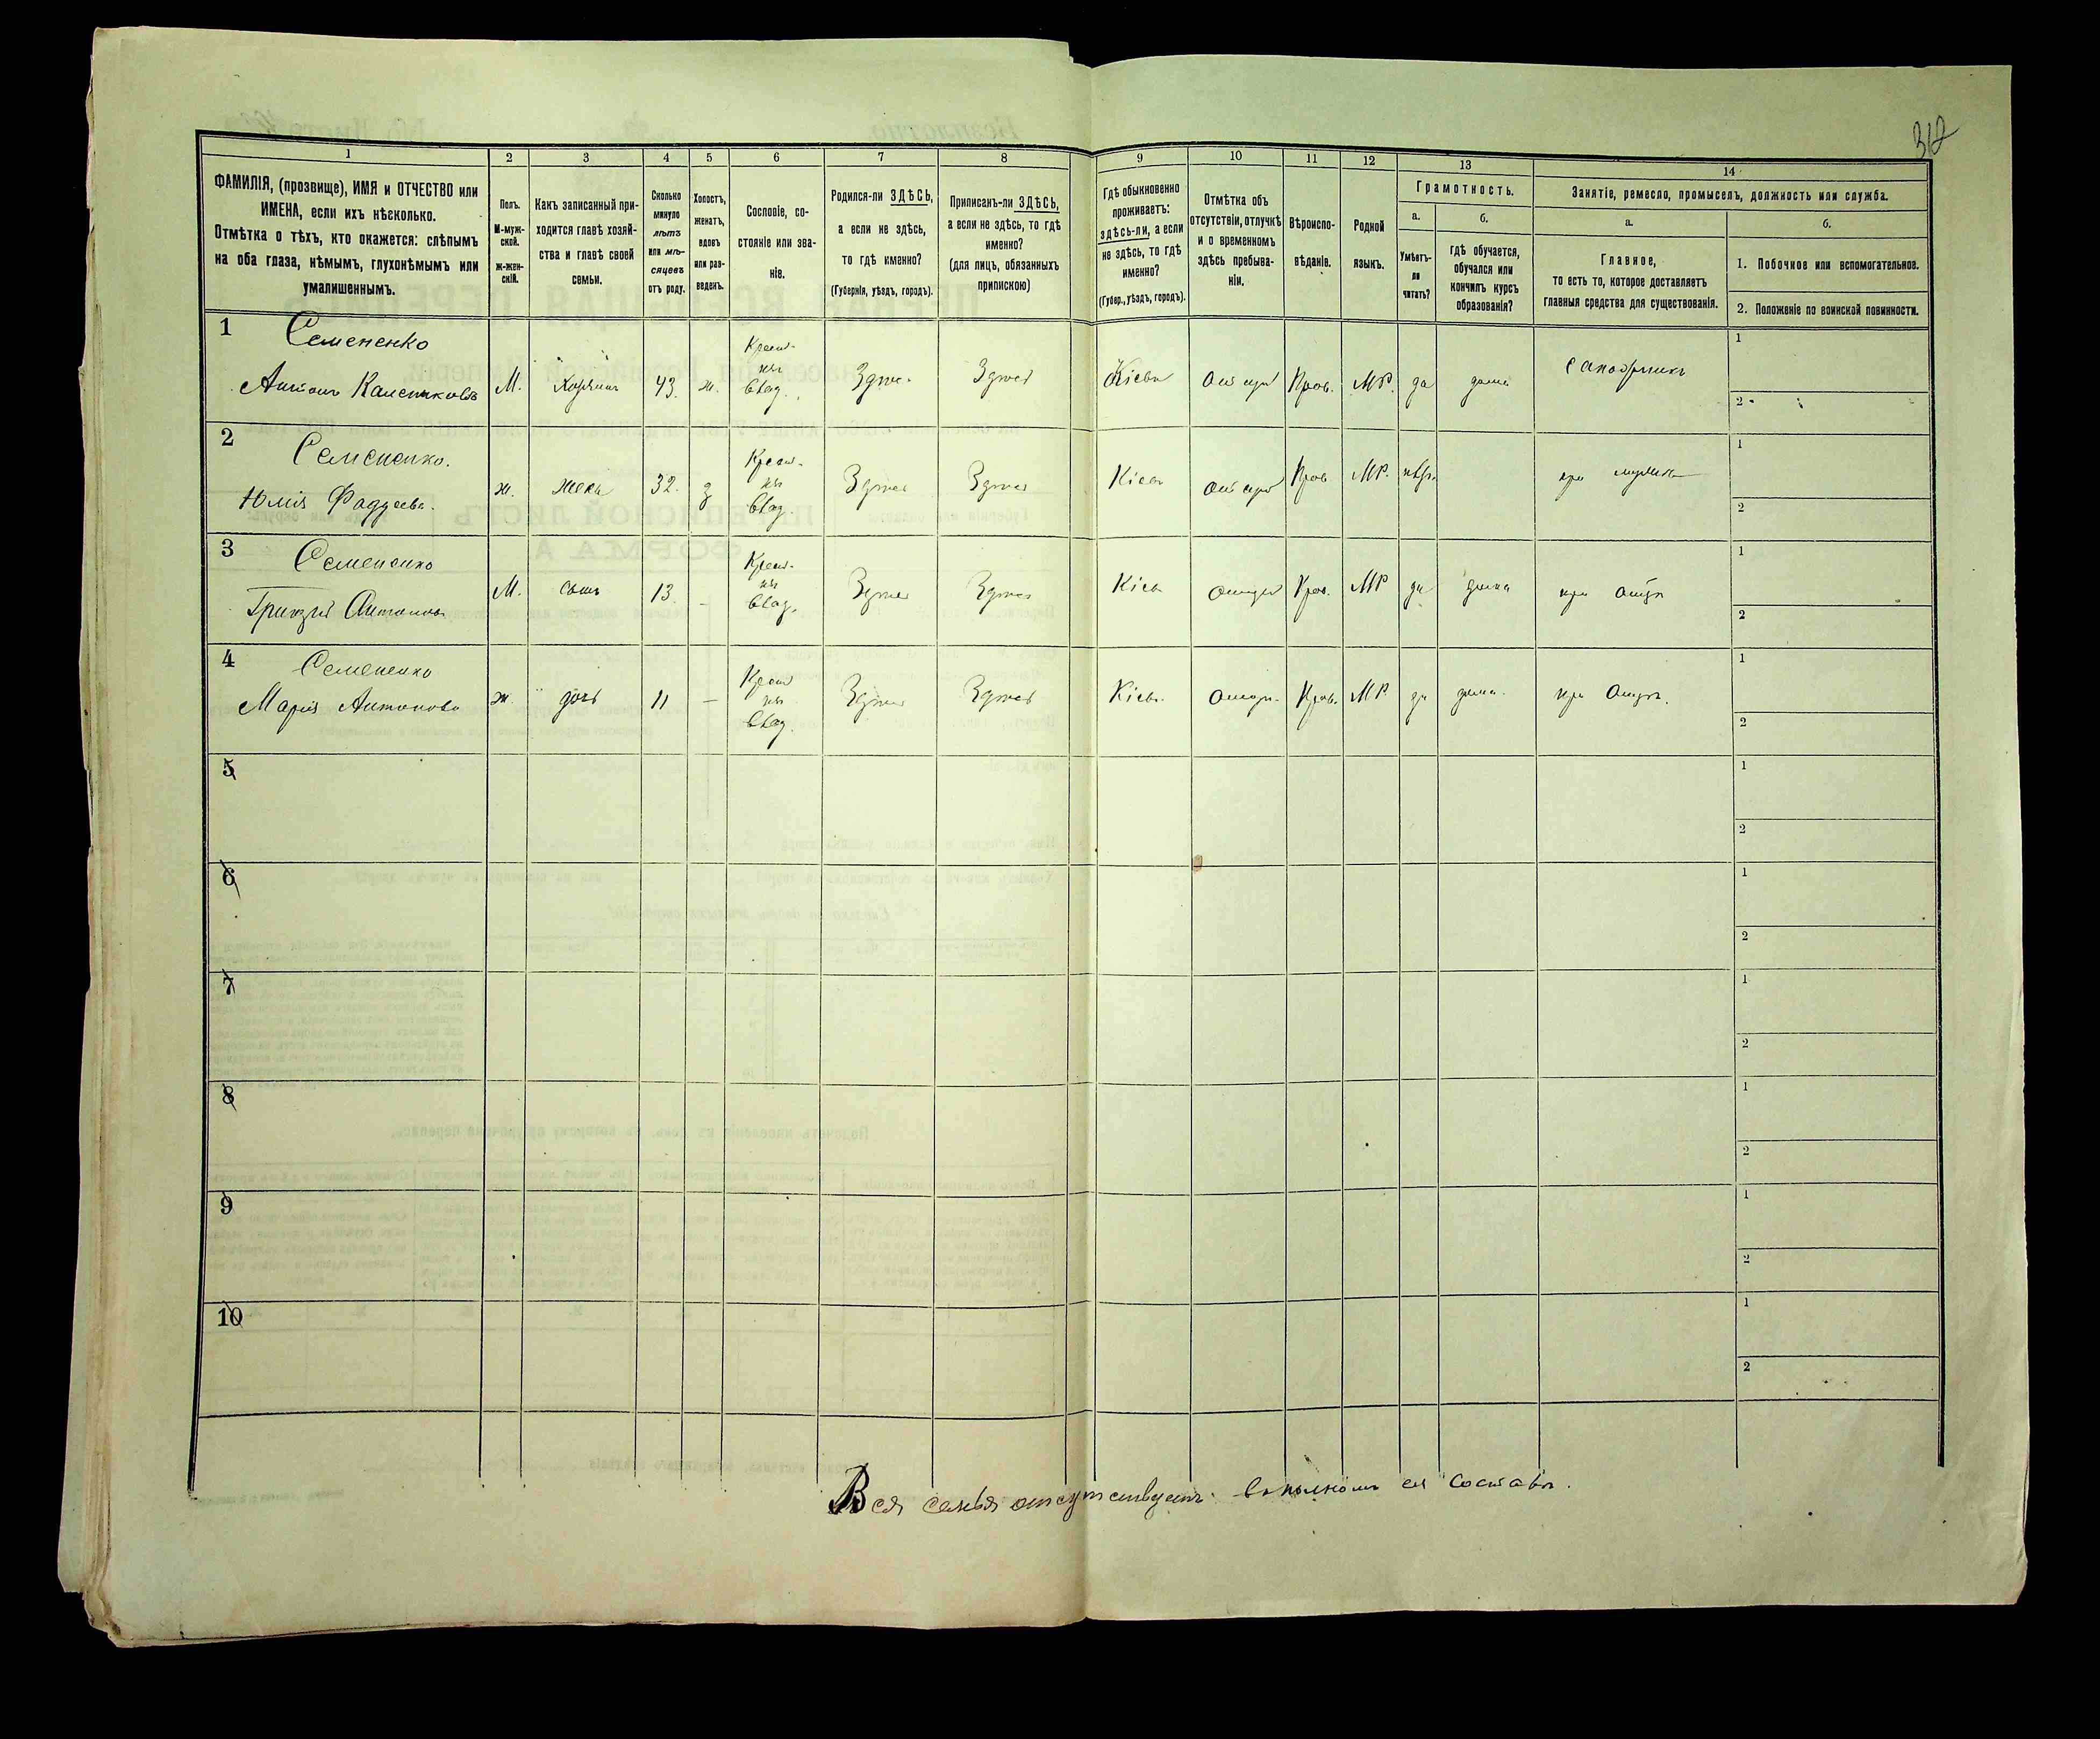 318
1
2
3
4
5
6
7
8
9
10
11
12
13
14
ФАМИЛІЯ, (прозвище), ИМЯ и ОТЧЕСТВО или
ИМЕНА, если ихъ нѣсколько.
Отмѣтка о тѣхъ, кто окажется: слѣпымъ
на оба глаза, нѣмымъ, глухонѣмымъ или
умалишеннымъ.
Полъ.
М-муж-
ской.
ж-жен-
скій.
Какъ записанный при-
ходится главѣ хозяй-
ства и главѣ своей
семьи.
Сколько
минуло
лѣтъ
или мѣ-
сяцевъ
отъ роду.
Холостъ,
женатъ,
вдовъ
или раз-
веденъ.
Сословіе, со-
стояніе или зва-
ніе.
Родился-ли ЗДѢСЬ,
а если не здѣсь,
то гдѣ именно?
(Губернія, уѣздъ, городъ).
Приписанъ-ли ЗДѢСЬ,
а если не здѣсь, то гдѣ
именно?
(для лицъ, обязанныхъ
припискою)
Гдѣ обыкновенно
проживаетъ:
здѣсь-ли, а если
не здѣсь, то гдѣ
именно?
(Губер., уѣздъ, городъ).
Отмѣтка объ
отсутствіи, отлучкѣ
и о временномъ
здѣсь пребыва-
ніи.
Вѣроиспо-
вѣданіе.
Родной
языкъ.
Грамотность.
а.
Умѣетъ-
ли
читать?
б.
гдѣ обучается,
обучался или
кончилъ курсъ
образованія?
Занятіе, ремесло, промыселъ, должность или служба.
а.
Главное,
то есть то, которое доставляетъ
главныя средства для существованія.
б.
1. Побочное или вспомогательное.
2. Положеніе по воинской повинности.
1
Семененко
Антонъ Калениковъ
М.
Хозяинъ
43.
ж.
Крест-
нъ
Влад.
Здѣсь
Здѣсь
Кіевъ
Отсут
Прав.
МР.
да
дома
Сапожникъ
1
2
2
Семененко.
Юлія Фаддеева.
ж.
жена
32.
з
Крест-
нъ
Влад.
Здѣсь
Здѣсь
Кіевъ
Отсут
Прав
МР.
нѣтъ
при мужѣ
1
2
3
Семененко
Антоновъ
М.
сынъ
13.
–
Крест-
нъ
Влад.
Здѣсь
Здѣсь
Кіевъ
Отсут
Прав.
МР
да
дома
при отцѣ
1
2
4
Семененко
Марія Антонова
ж.
дочь
11
–
Крест
нъ
Влад.
Здѣсь
Здѣсь
Кіевъ.
Отсут.
Прав.
МР
да
дома.
при Отцѣ.
1
2
5
1
2
6
1
2
7
1
2
8
1
2
9
1
2
10
1
2
Вся семья отсутствуетъ въ полномъ ея составѣ.